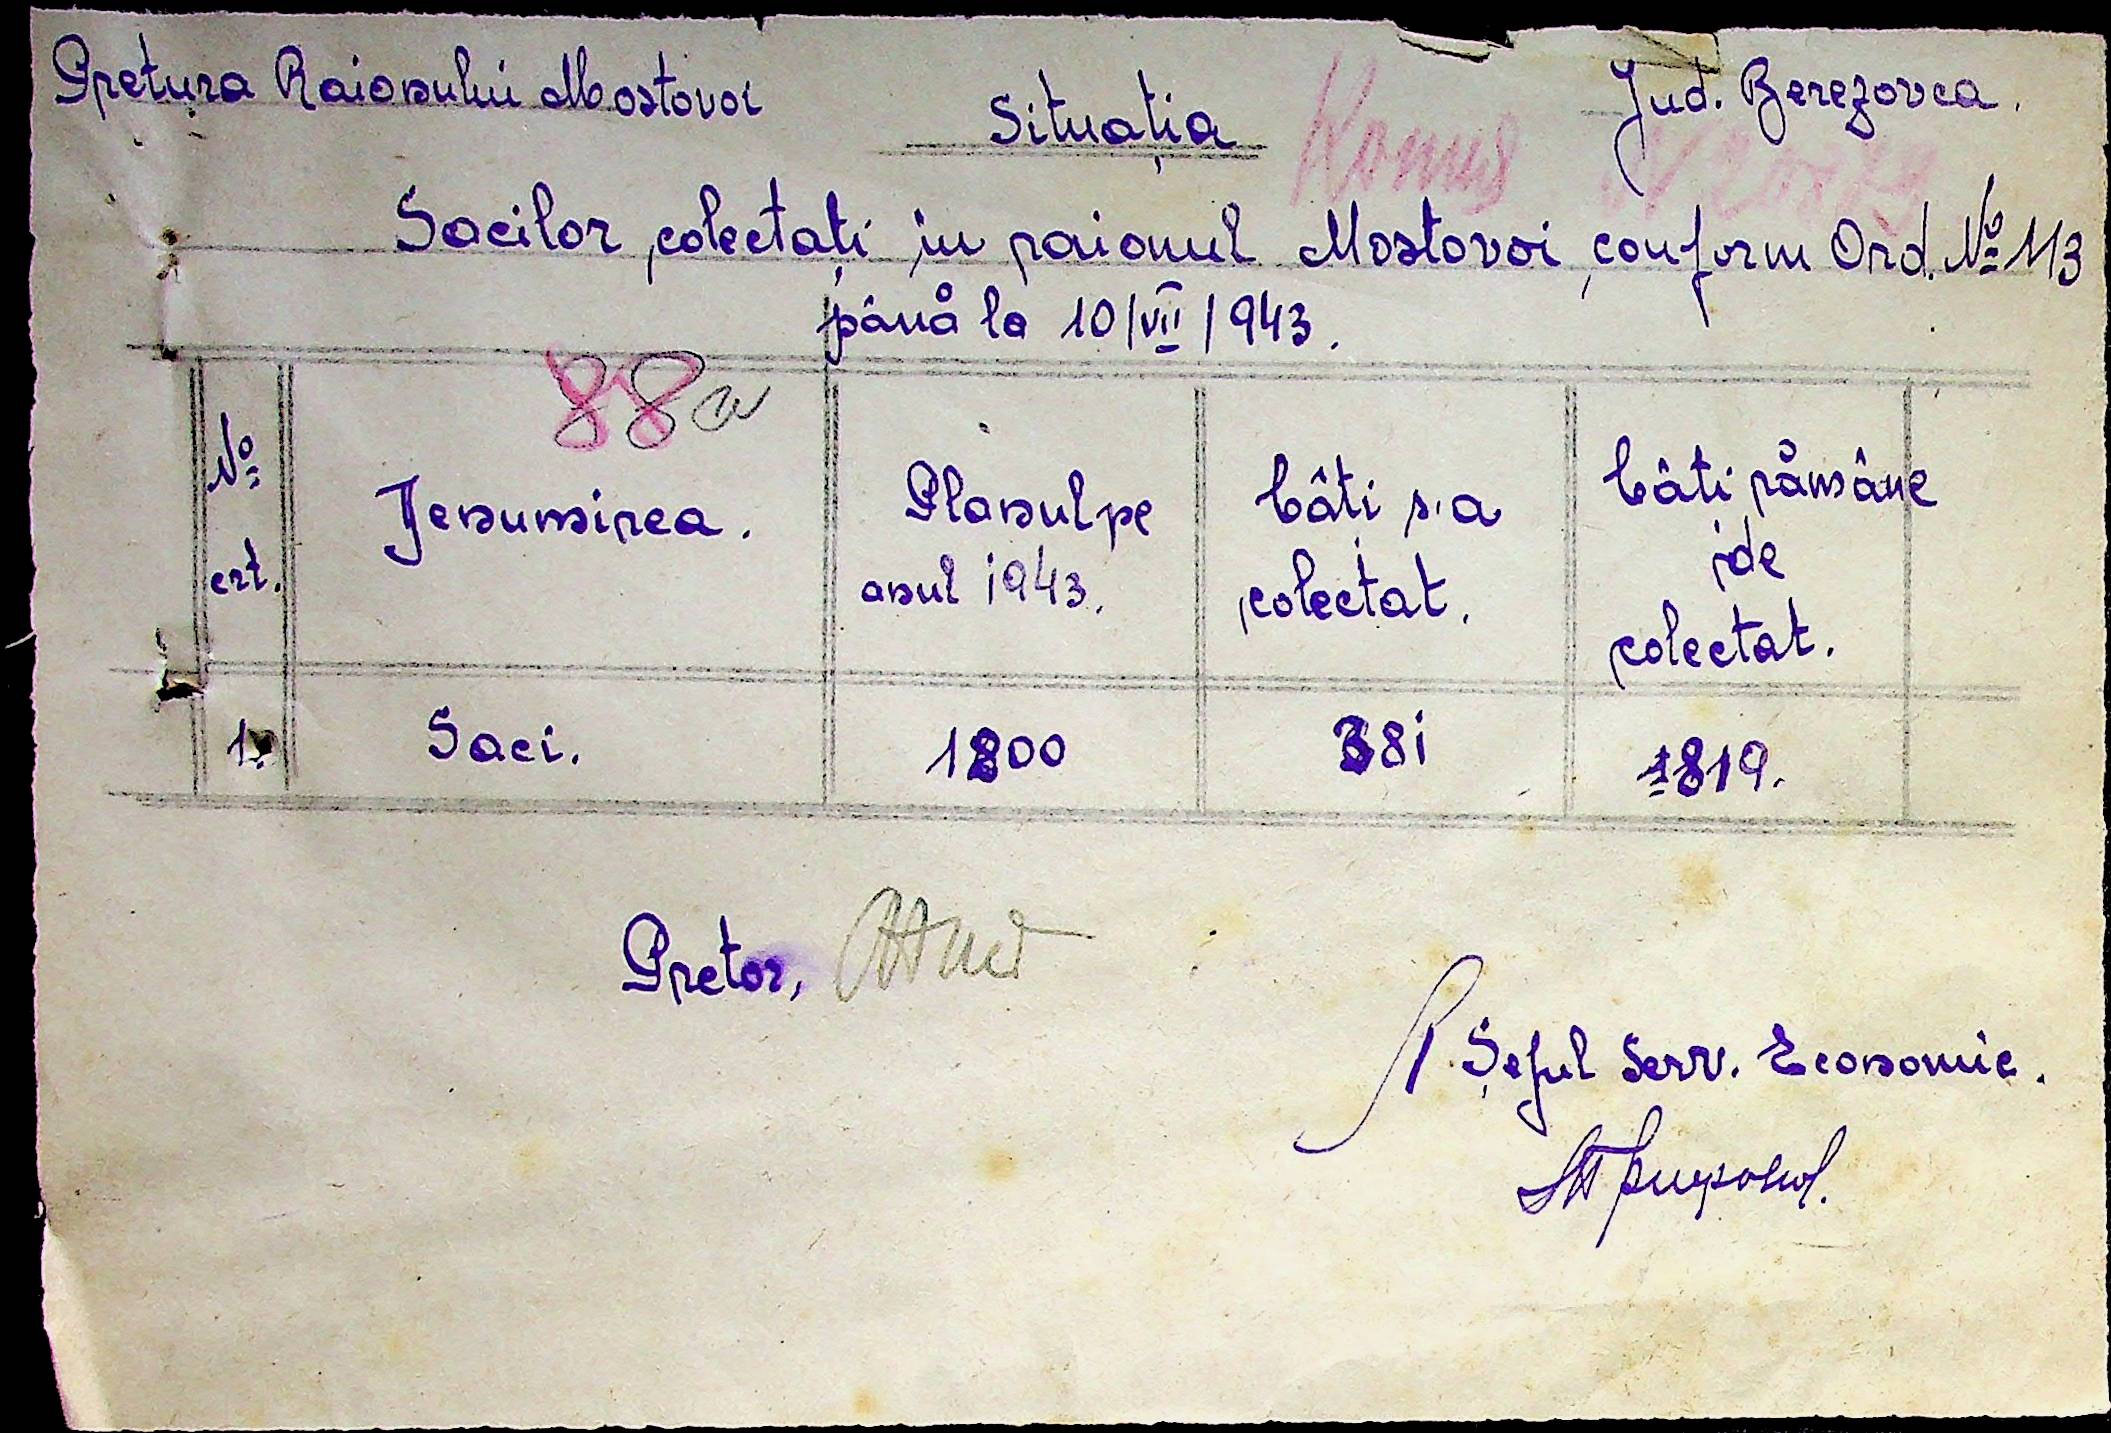 Pretura Raionului Mostovoi
Jud. Berezovca.
Situația
Sacilor colectați in raionul Mostovoi conform Ord. № 113
până la 10/VII/1943.
88a
№ crt.
Denumirea.
Planul pe anul 1943.
Câti s-a colectat.
Câti rămâne de colectat.
1.
Saci.
381
1819.
Pretor,
P Șeful Serv. Economic.